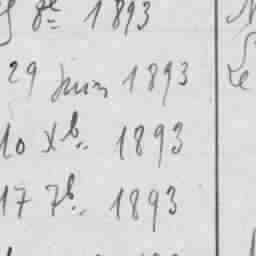 8e 1893
29 Juin 1893
10 Xb. 1893
17 7b. 1893